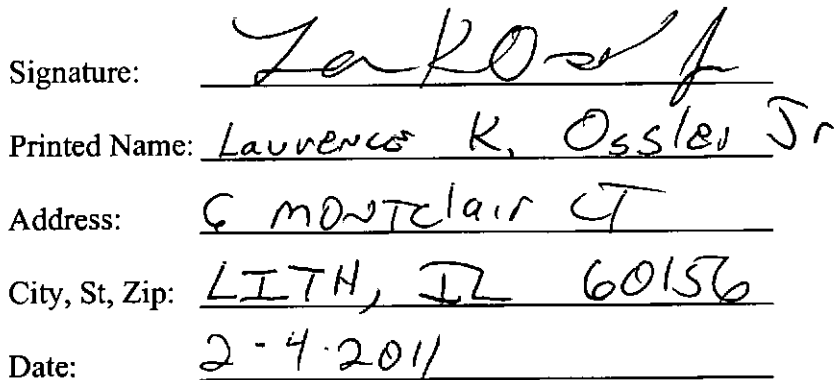 Signature:
Printed Name: Laurence K. Ossler Jr
Address: 6 Montclair CT
City, St, Zip: LITH, IL 60156
Date: 2-4-2011